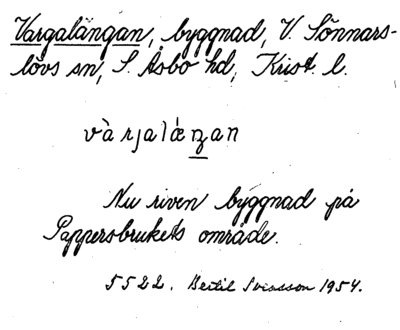 Vargalängan, byggnad, V. Sönnars-
lövs sn, S. Åsbo hd, Krist. l.
Nu riven byggnad på
Pappersbrukets område.
5522. Bertil Svensson 1954.